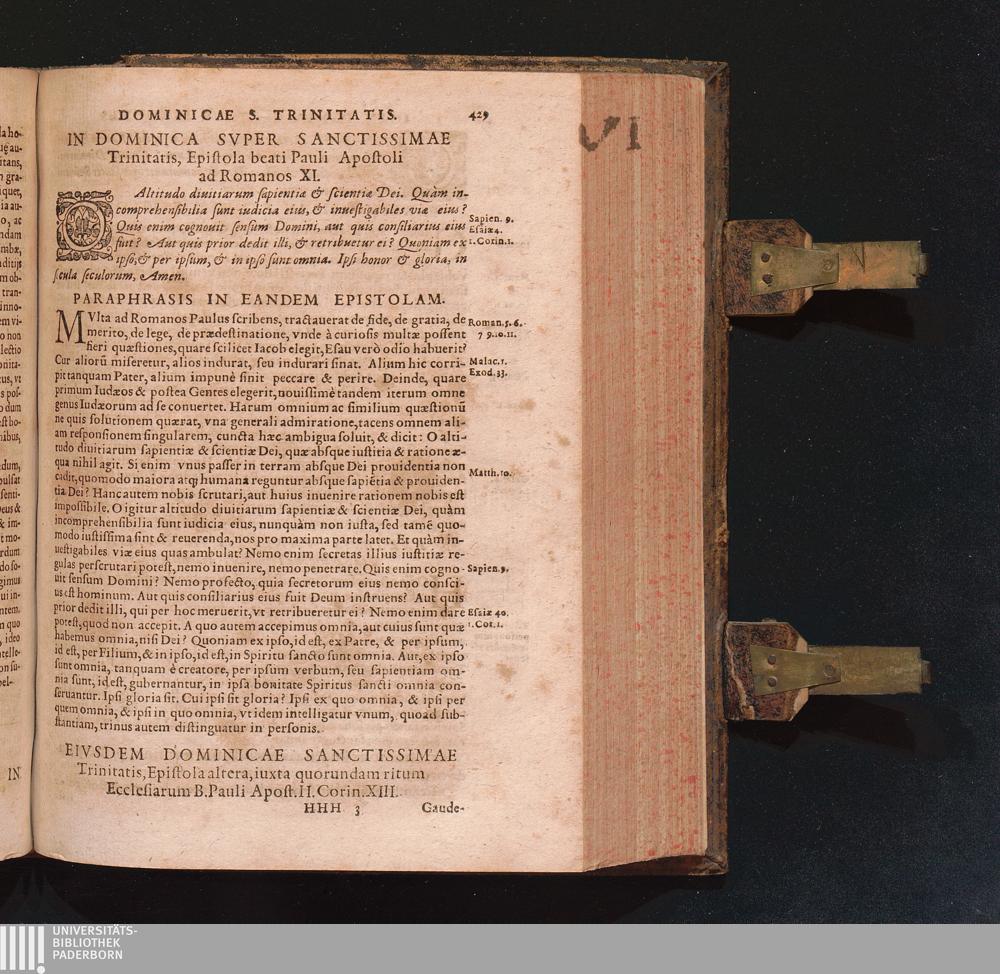 DOMINICAE S. TRINITATIS. 429
IN DOMINICA SVPER SANCTISSIMAE
Trinitatis, Epiſtola beati Pauli Apoſtoli
ad Romanos XI.
O Altitudo diuitiarum ſapientiæ & ſcientiæ Dei. Quàm in-
comprehenſibilia ſunt iudicia eius, & inueſtigabiles viæ eius?
Quis enim cognouit ſenſum Domini, aut quis conſiliarius eius
fuit? Aut quis prior dedit illi, & retribuetur ei? Quoniam ex
ipſo, & per ipſum, & in ipſo ſunt omnia. Ipſi honor & gloria, in
ſecula ſeculorum, Amen.
Sapien. 9.
Eſaiæ 4.
1. Corin. 1.
PARAPHRASIS IN EANDEM EPISTOLAM.
MVlta ad Romanos Paulus ſcribens, tractauerat de fide, de gratia, de
merito, de lege, de prædeſtinatione, vnde à curioſis multæ poſſent
fieri quæſtiones, quare ſcilicet Iacob elegit, Eſau verò odio habuerit?
Cur aliorũ miſeretur, alios indurat, ſeu indurari ſinat. Alium hic corri-
pit tanquam Pater, alium impunè ſinit peccare & perire. Deinde, quare
primum Iudæos & poſtea Gentes elegerit, nouiſſimè tandem iterum omne
genus Iudæorum ad ſe conuertet. Harum omnium ac ſimilium quæſtionũ
ne quis ſolutionem quærat, vna generali admiratione, tacens omnem ali-
am reſponſionem ſingularem, cuncta hæc ambigua ſoluit, & dicit: O alti-
tudo diuitiarum ſapientiæ & ſcientiæ Dei, quæ abſque iuſtitia & ratione æ-
qua nihil agit. Si enim vnus paſſer in terram abſque Dei prouidentia non
cadit, quomodo maiora atq; humana reguntur abſque ſapiẽtia & prouiden-
tia Dei? Hanc autem nobis ſcrutari, aut huius inuenire rationem nobis eſt
impoſſibile. O igitur altitudo diuitiarum ſapientiæ & ſcientiæ Dei, quàm
incomprehenſibilia ſunt iudicia eius, nunquàm non iuſta, ſed tamẽ quo-
modo iuſtiſſima ſint & reuerenda, nos pro maxima parte latet. Et quàm in-
ueſtigabiles viæ eius quas ambulat? Nemo enim ſecretas illius iuſtitiæ re-
gulas perſcrutari poteſt, nemo inuenire, nemo penetrare. Quis enim cogno-
uit ſenſum Domini? Nemo profectò, quia ſecretorum eius nemo conſci-
us eſt hominum. Aut quis conſiliarius eius fuit Deum inſtruens? Aut quis
prior dedit illi, qui per hoc meruerit, vt retribueretur ei? Nemo enim dare
poteſt, quod non accepit. A quo autem accepimus omnia, aut cuius ſunt quæ
habemus omnia, niſi Dei? Quoniam ex ipſo, id eſt, ex Patre, & per ipſum,
id eſt, per Filium, & in ipſo, id eſt, in Spiritu ſancto ſunt omnia. Aut, ex ipſo
ſunt omnia, tanquam è creatore, per ipſum verbum, ſeu ſapientiam om-
nia ſunt, id eſt, gubernantur, in ipſa bonitate Spiritus ſancti omnia con-
ſeruantur. Ipſi gloria ſit. Cui ipſi ſit gloria? Ipſi ex quo omnia, & ipſi per
quem omnia, & ipſi in quo omnia, vt idem intelligatur vnum, quoad ſub-
ſtantiam, trinus autem diſtinguatur in perſonis.
Roman. 5. 6.
7 9. 10. 11.
Malac. 1.
Exod. 33.
Matth. 10.
Sapien. 9.
Eſaiæ 40.
1. Cor. 1.
EIVSDEM DOMINICAE SANCTISSIMAE
Trinitatis, Epiſtola altera, iuxta quorundam ritum
Eccleſiarum B. Pauli Apoſt. II. Corin. XIII.
HHH 3 Gaude-
IN
VI
UNIVERSITÄTS-
BIBLIOTHEK
PADERBORN